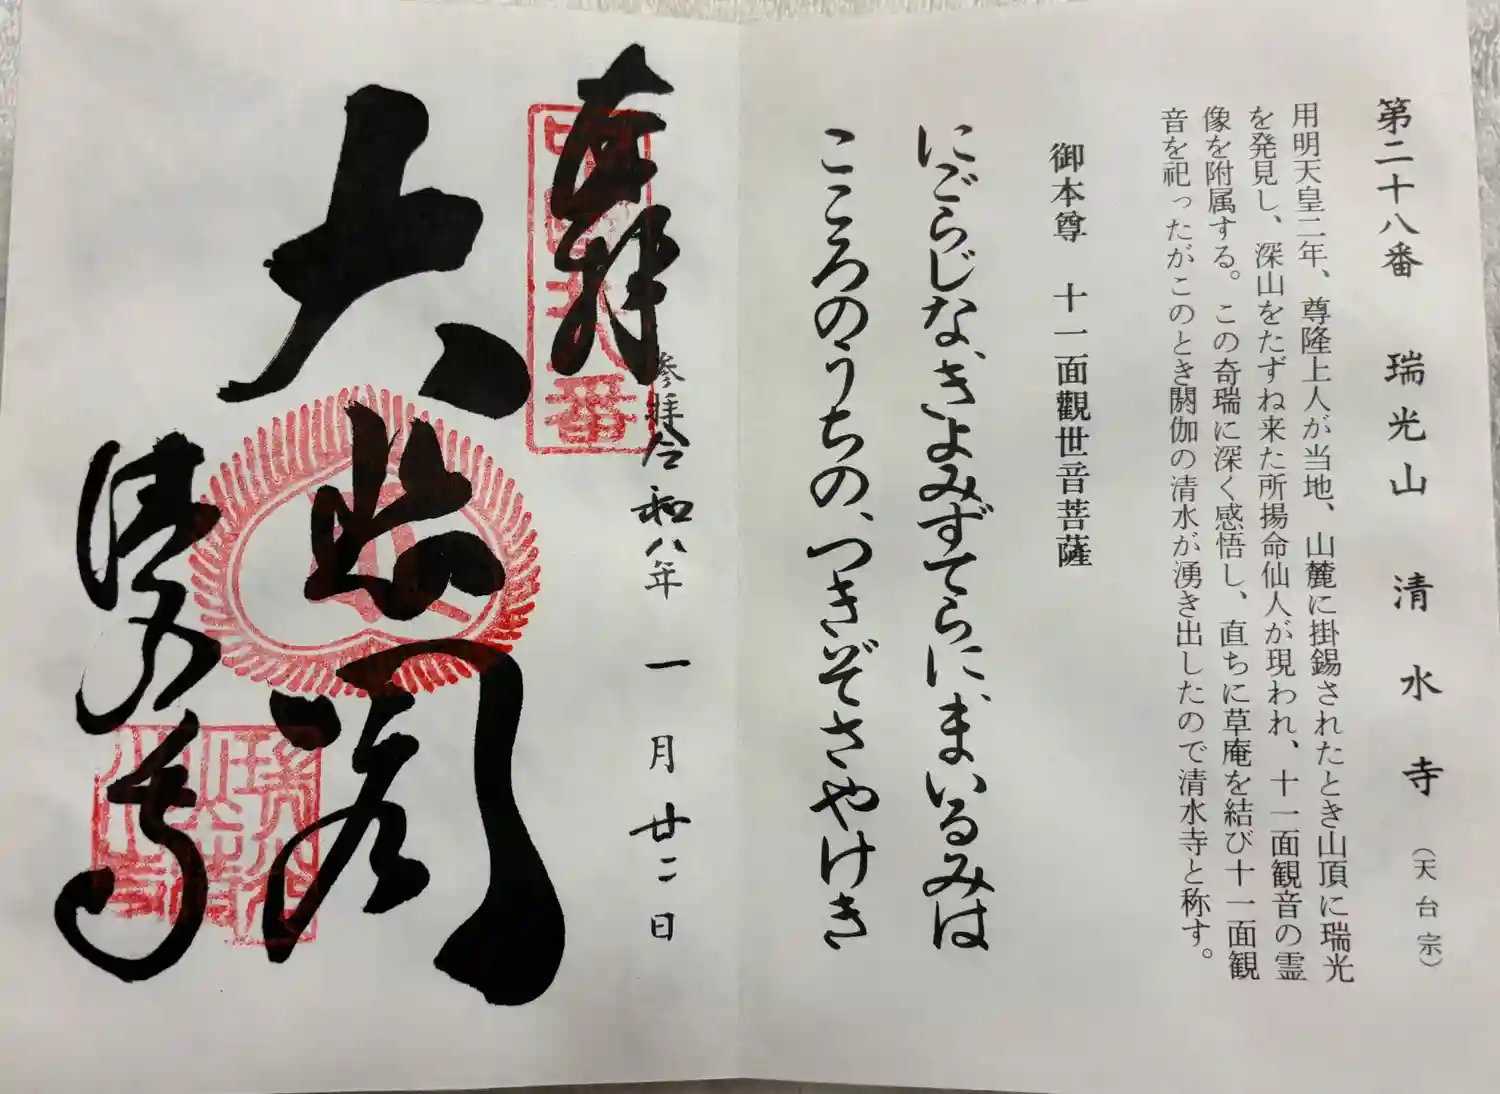 第二十八番 瑞光山 清水寺（天台宗）
用明天皇二年、尊隆上人が当地、山麓に掛錫されたとき山頂に瑞光
を発見し、深山をたずね来た所揚命仙人が現われ、十一面観音の霊
像を附属する。この奇瑞に深く感悟し、直ちに草庵を結び十一面観
音を祀ったがこのとき閼伽の清水が湧き出したので清水寺と称す。
御本尊 十一面觀世音菩薩
にごらじな、きよみずてらに、まいるみは
こころのうちの、つきぞさやけき
奉拝
参拝令和八年一月廿二日
大悲閣
清水寺